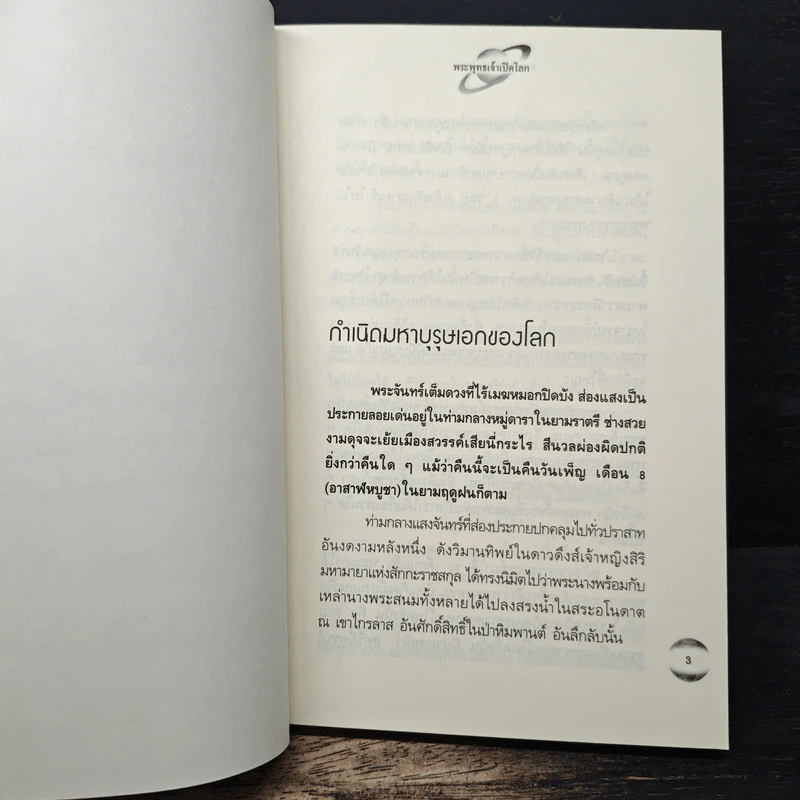 พระพุทธเจ้าเปิดโลก
กำเนิดมหาบุรุษเอกของโลก
พระจันทร์เต็มดวงที่ไร้เมฆหมอกปิดบัง ส่องแสงเป็น
ประกายลอยเด่นอยู่ในท่ามกลางหมู่ดาราในยามราตรี ช่างสวย
งามดุจจะเย้ยเมืองสวรรค์เสียนี่กระไร สีนวลผ่องผิดปกติ
ยิ่งกว่าคืนใด ๆ แม้ว่าคืนนี้จะเป็นคืนวันเพ็ญ เดือน ๘
(อาสาฬหบูชา) ในยามฤดูฝนก็ตาม
ท่ามกลางแสงจันทร์ที่ส่องประกายปกคลุมไปทั่วปราสาท
อันงดงามหลังหนึ่ง ดังวิมานทิพย์ในดาวดึงส์เจ้าหญิงสิริ
มหามายาแห่งสักกะราชสกุล ได้ทรงนิมิตไปว่าพระนางพร้อมกับ
เหล่านางพระสนมทั้งหลายได้ไปลงสรงน้ำในสระอโนดาต
ณ เขาไกรลาส อันศักดิ์สิทธิ์ในป่าหิมพานต์ อันลึกลับนั้น
3